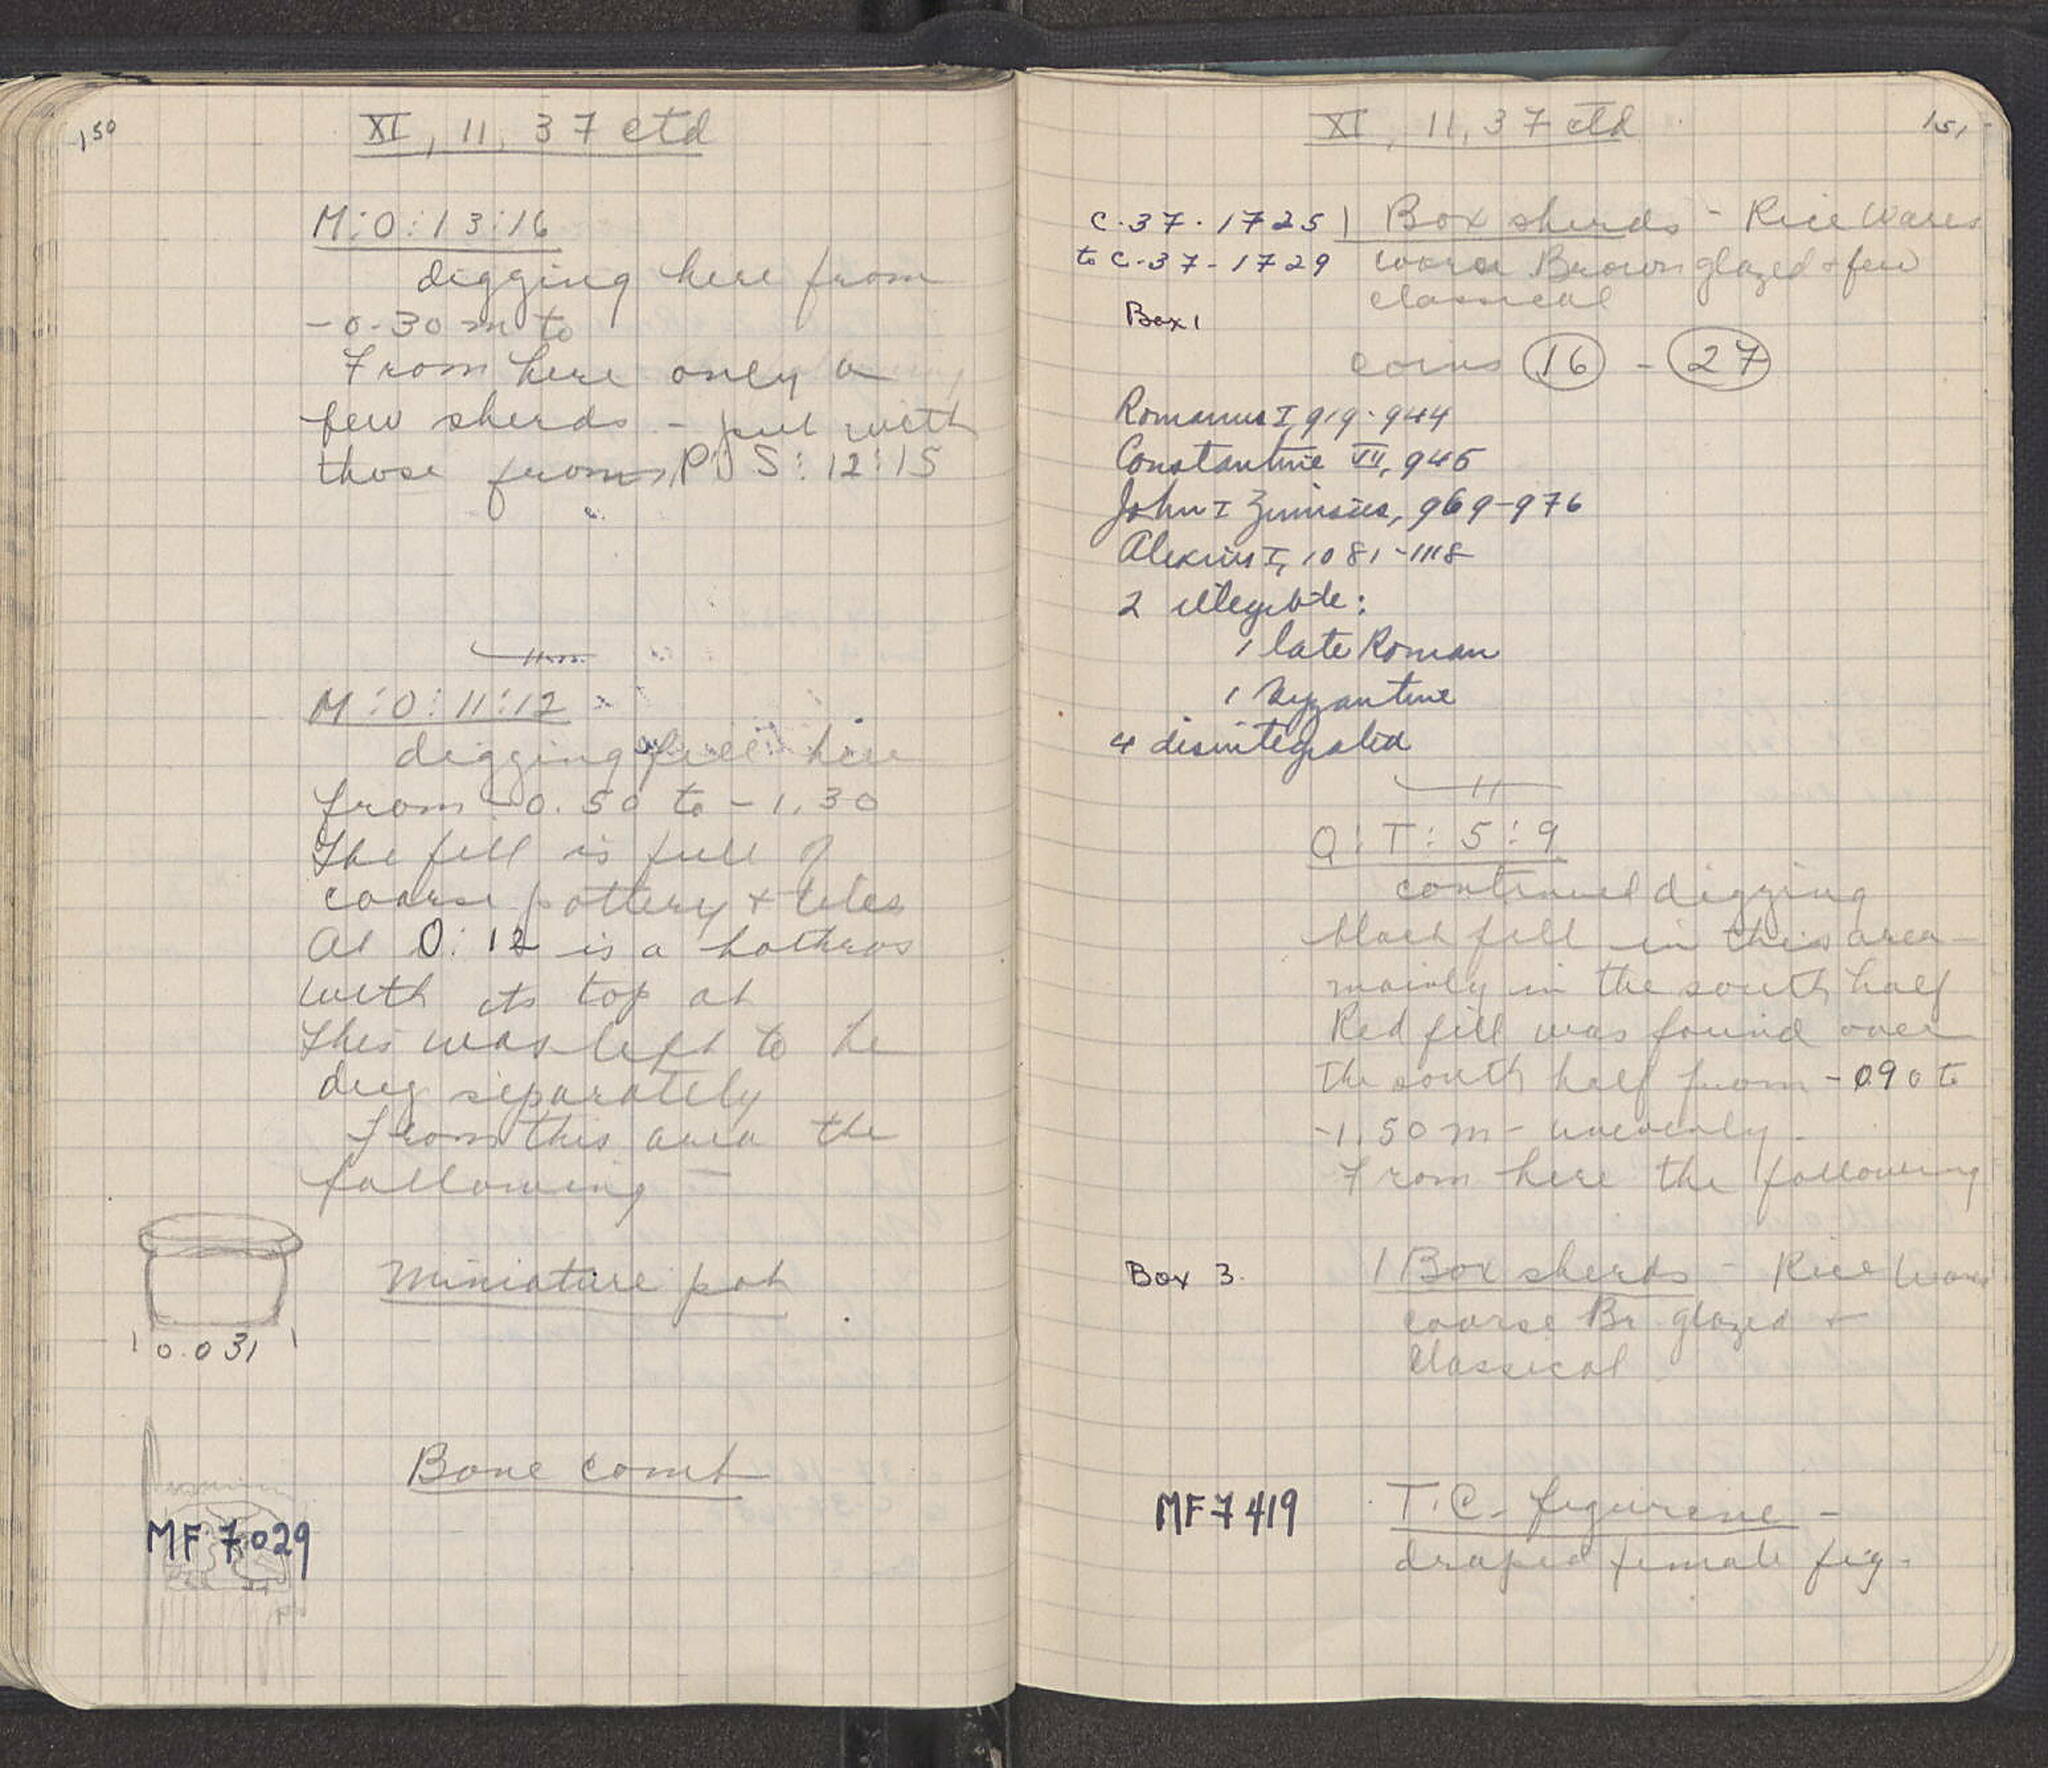 150
XI, 11, 37 ctd
M:O:13:16
digging here from
-0.30 m to
From here only a
few sherds - put with
those from P:S:12:15
M:O:11:12
digging fill here
from -0.50 to -1.30
The fill is full of
coarse pottery + tiles
At O:12 is a bothros
with its top at
This was left to be
dug separately
From this area the
following -
Miniature pot
0.031
Bone comb
MF 7029
151
XI, 11, 37 ctd
C.37.1725 1 Box sherds - Rice Wares
to C-37-1729 coarse Brown glazed + few
classical
Box 1
coins 16 - 27
Romanus I, 919-944
Constantine VII, 945
John I Zimisces, 969-976
Alexius I, 1081-1118
2 illegible:
1 late Roman
1 Byzantine
4 disintegrated
Q:T:5:9
continued digging
black fill in this area -
mainly in the south half
Red fill was found over
the south half from -0.90 to
-1.50 m - unevenly.
From here the following
Box 3. 1 Box sherds - Rice Wares
coarse Br. glazed +
Classical
MF 7419 T.C. figurine -
draped female fig.